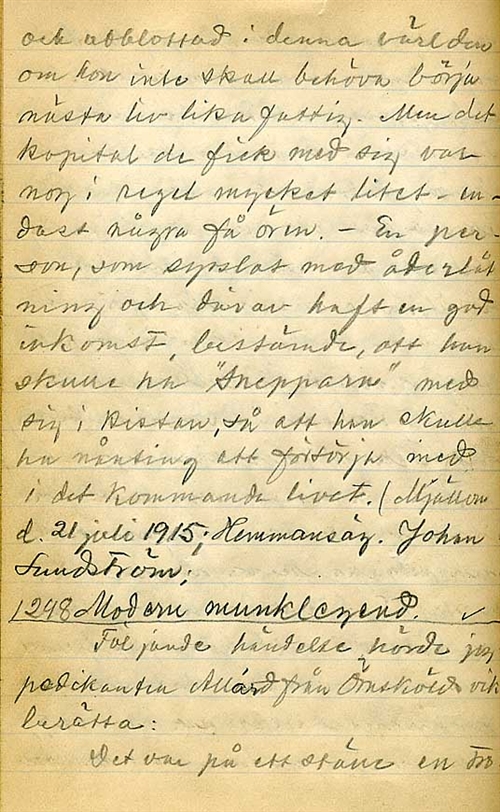 och utblottad i denna världen
om hon inte skall behöva börja
nästa liv lika fattig. Men det
kapital de fick med sig var
nog i regel mycket litet - en-
dast några få ören. - En per-
son, som sysslat med åderlåt
ning och därav haft en god
inkomst, bestämde, att han
skulle ha "Snepparn" med
sig i kistan, så att han skulle
ha nånting att försörja med
i det kommande livet. (Mjällom
d. 21 juli 1915; Hemmansäg. Johan
Sundström;
1248 Modern munklegend. ✓
Följande händelse hörde jag
predikanten från Örnsköldsvik
berätta:
Det var på ett ställe en